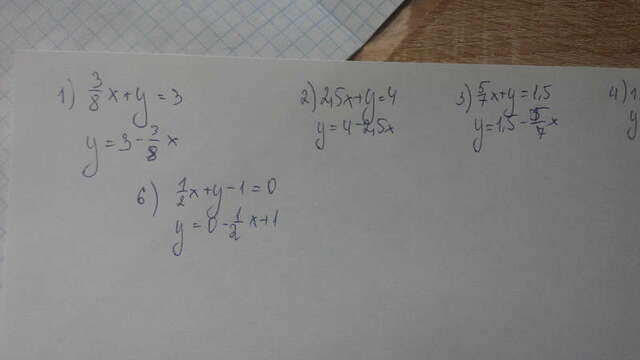 1) 3/8 x + y = 3
y = 3 - 3/8 x
2) 2,5x + y = 4
y = 4 - 2,5x
3) 5/7 x + y = 1,5
y = 1,5 - 5/7 x
4) 1
y
6) 1/2 x + y - 1 = 0
y = 0 - 1/2 x + 1